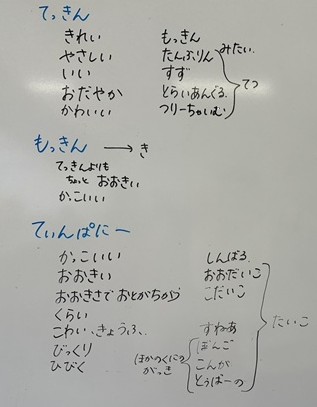 てっきん
きれい　もっきん
やさしい　たんぶりん　みたい.
いい　すず
おだやか　とらいあんぐる.　てつ
かわいい　つりーちゃいむ
もっきん → き
てっきんよりも
ちょっと おおきい
かっこいい
てぃんぱにー
かっこいい　しんばる.
おおきい　おおだいこ
おおきさで おとがちがう　こだいこ
くらい　たいこ
こわい、きょうふ、　すねあ
びっくり　ぼんご
ひびく　ほかのくにの　こんが
がっき　とぅばーの